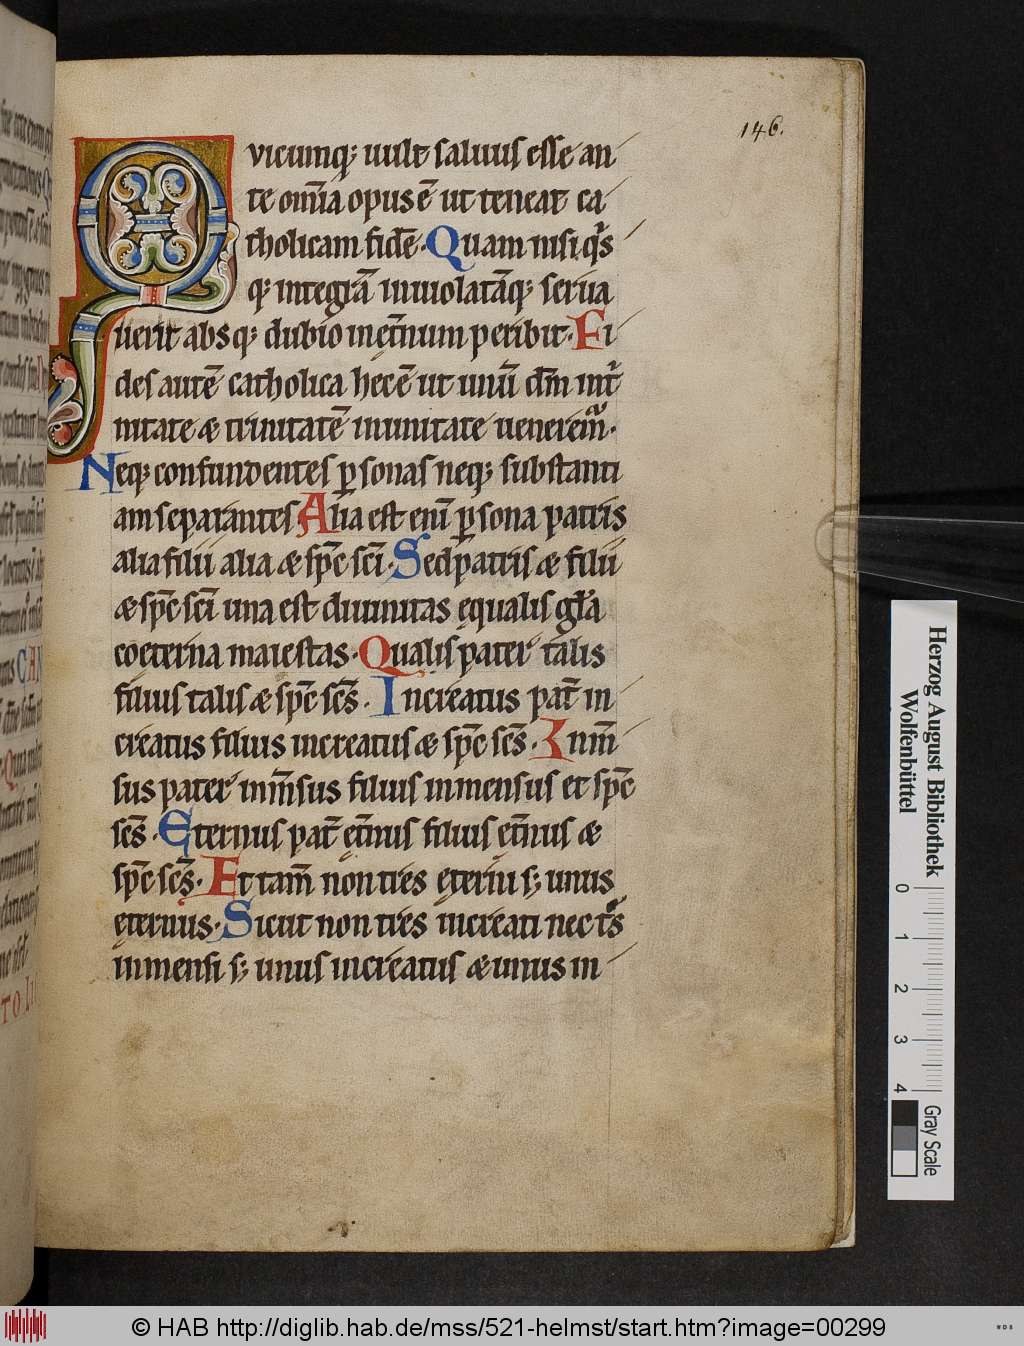 146.
Qvicumq; uult saluus esse an
te om̅ia opus e̅ ut teneat ca
tholicam fide̅. Quam nisi qͥs
q; integra̅ inuiolata̅q; serua
uerit absq; dubio in et̅num peribit. Fi
des aute̅ catholica hec e̅ ut unu̅ dm̅ in t̓
nitate & trinitate̅ in unitate uenerem᷒.
Neq; confundentes ꝑsonas neq; substanti
am separantes Alia est eni̅ ꝑsona patris
alia filii alia & spc̅ sci̅. Sed patris & filii
& spc̅ sci̅ una est diuinitas ęqualis gl̅a
coeterna maiestas. Qualis pater talis
filius talis & spc̅ scs̅. Increatus pat̅ in
creatus filius increatus & spc̅ scs̅. Inm̅
sus pater inm̅sus filius inmensus et spc̅
scs̅. Eternus pat̅ ęt̅nus filius ęt̅nus &
spc̅ scs̅. Et tam̅ non tres ęterni s; unus
ęternus. Sicut non tres increati nec tͤs
inmensi s; unus increatus & unus in
Herzog August Bibliothek
Wolfenbüttel
0 1 2 3 4
Gray Scale
© HAB http://diglib.hab.de/mss/521-helmst/start.htm?image=00299